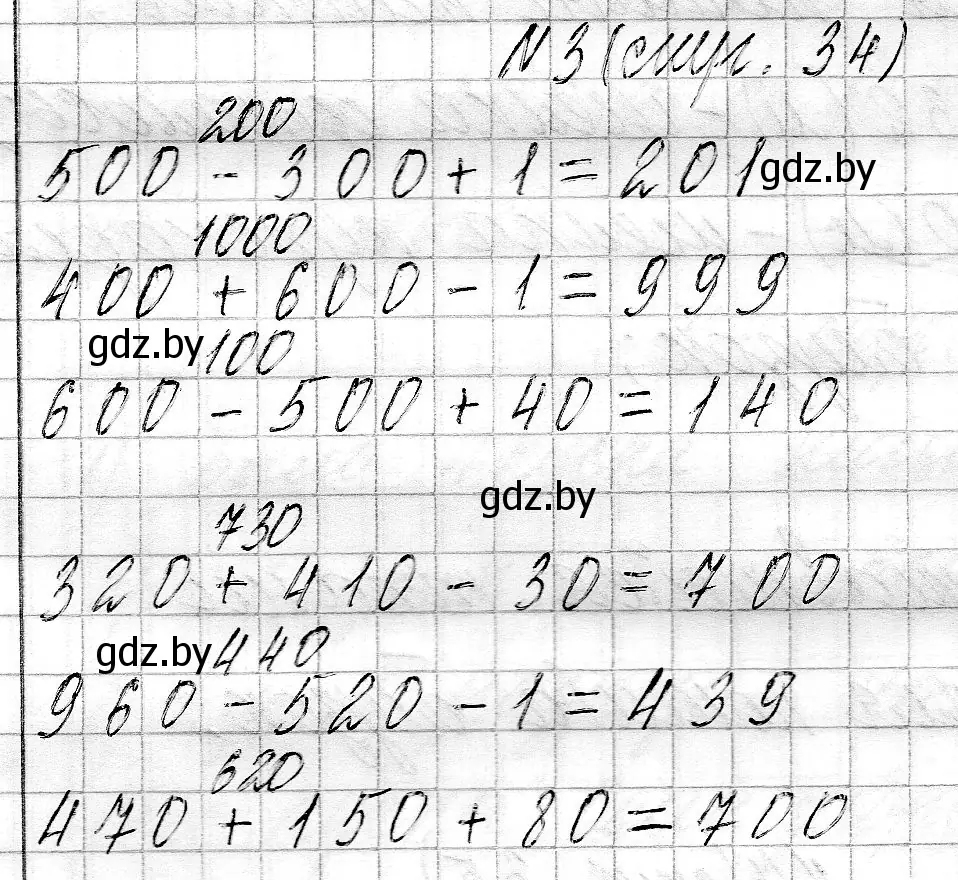 №3 (стр. 34)
200
500 - 300 + 1 = 201
gdz.by
1000
400 + 600 - 1 = 999
gdz.by
100
600 - 500 + 40 = 140
gdz.by
730
320 + 410 - 30 = 700
gdz.by
440
960 - 520 - 1 = 439
620
470 + 150 + 80 = 700